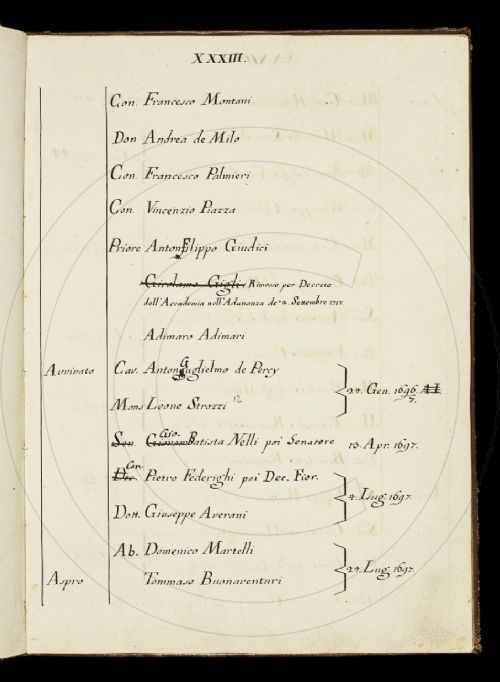 XXXIII.
Con. Francesco Montani
Don Andrea de Milo
Con. Francesco Palmieri
Con. Vincenzio Piazza
Priore Antonfilippo Giudici
Girolamo Gigli Rimoso per Decreto
dell'Accademia nell'Adunanza de' 2. Settembre 1717.
Adimaro Adimari
Avvivato Cav. Antonguglielmo de Percy
24. Gen. 1696/7. AI
Mons. Leone Strozzi 12
Sen. Gio. Batista Nelli poi Senatore 13. Apr. 1697.
Can. Dec. Pietro Federighi poi Dec. Fior.
4. Lug. 1697.
Dott. Giuseppe Averani
Ab. Domenico Martelli
24. Lug. 1697.
Aspro Tommaso Buonaventuri